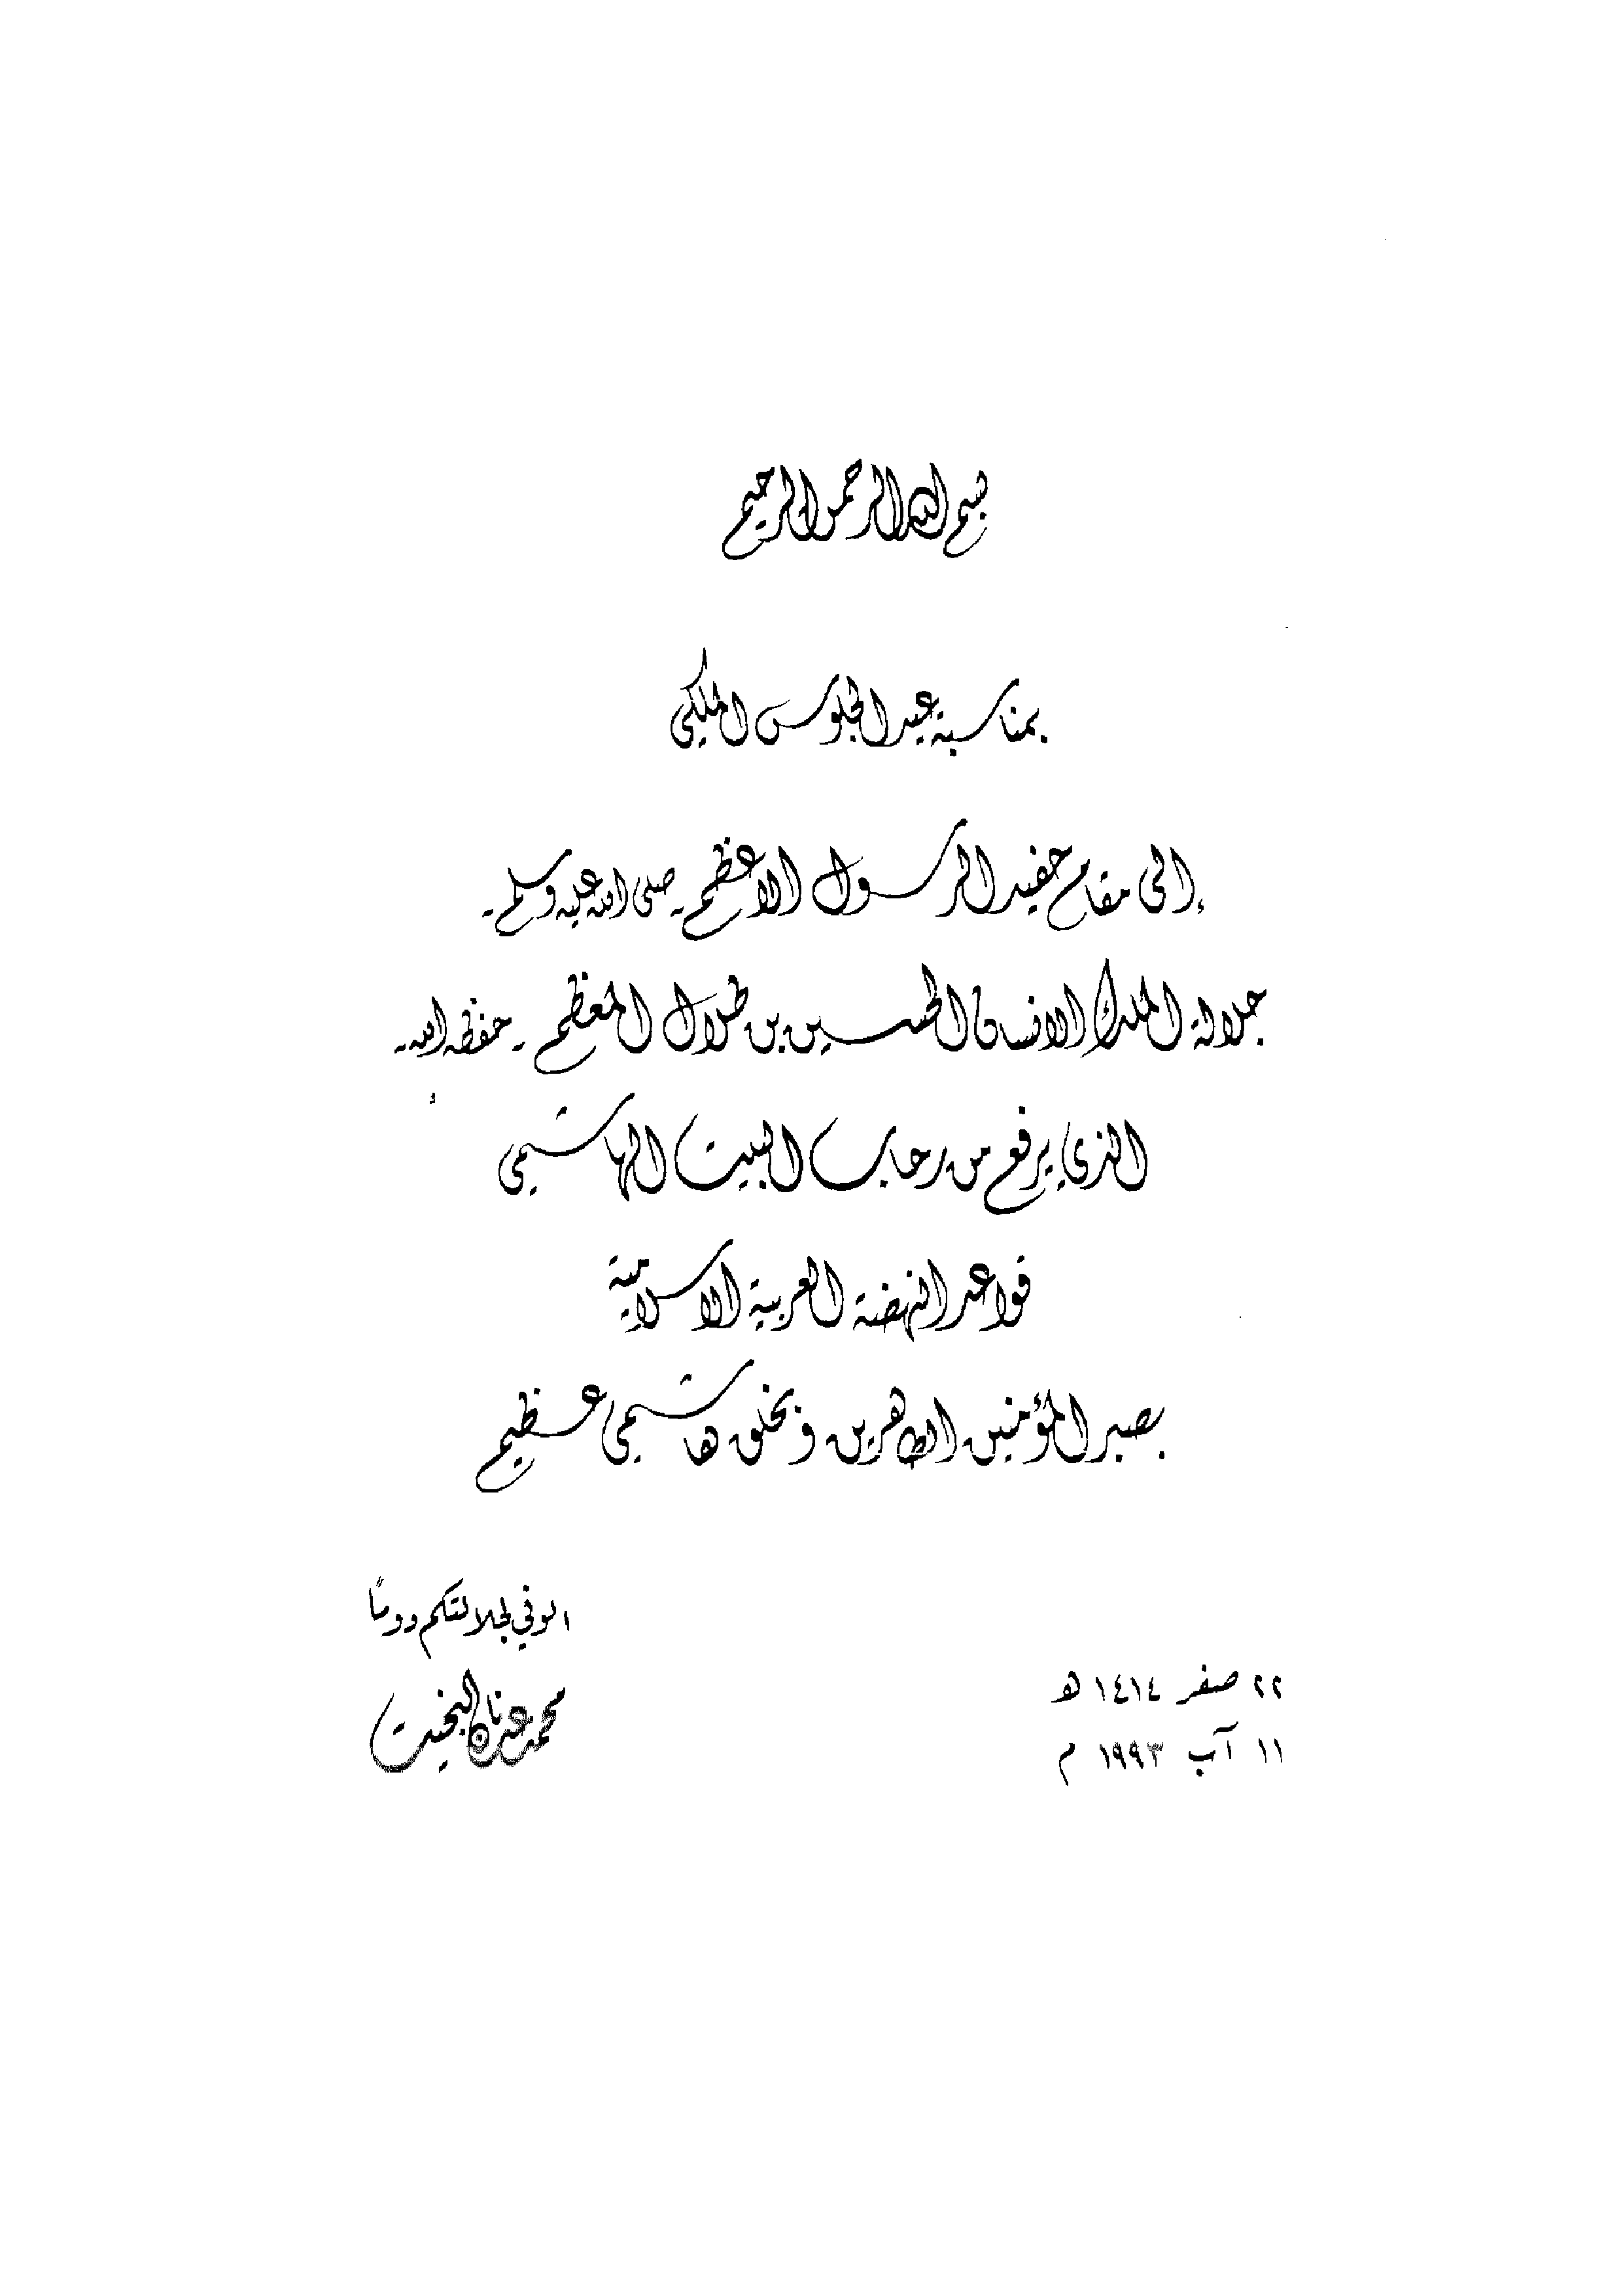 بسم الله الرحمن الرحيم
بمناسبة عيد الجلوس الملكي
إلى مقام حفيد الرسول الاعظم - صلى الله عليه وسلم -
جلالة الملك الانسان الحسين بن طلال المعظم - حفظه الله -
الذي يرفع من رحاب البيت الهاشمي
قواعد النهضة العربية الاسلامية
بصبر المؤمنين الطاهرين وبخلق هاشمي عظيم
الوفي لجلالتكم دوماً
محمد عدنان البخيت
٢٢ صفر ١٤١٤ هـ
١١ آب ١٩٩٣ م